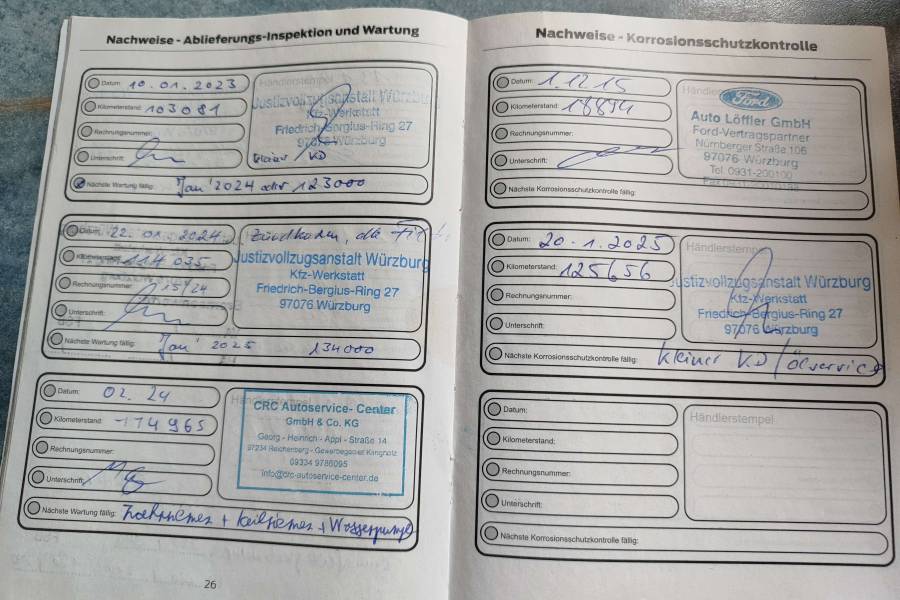 Nachweise - Ablieferungs-Inspektion und Wartung
Datum: 10.01.2023
Händlerstempel
Kilometerstand: 103081
Justizvollzugsanstalt Würzburg
Kfz-Werkstatt
Rechnungsnummer:
Friedrich-Bergius-Ring 27
97076 Würzburg
Unterschrift:
kleiner KD
Nächste Wartung fällig: Jan' 2024 oder 123000
Datum: 22.01.2024
Zündkerzen,
Kilometerstand: 114035
Justizvollzugsanstalt Würzburg
Kfz-Werkstatt
Rechnungsnummer: 15/24
Friedrich-Bergius-Ring 27
97076 Würzburg
Unterschrift:
Nächste Wartung fällig: Jan' 2025 134000
Datum: 02.24
CRC Autoservice- Center
Kilometerstand: 114965
GmbH & Co. KG
Georg - Heinrich - Appl - Straße 14
Rechnungsnummer:
97234 Reichenberg - Gewerbegebiet Klingholz
09334 9786095
Unterschrift:
info@crc-autoservice-center.de
Nächste Wartung fällig: Zahnriemen + Keilriemen + Wasserpumpe
26
Nachweise - Korrosionsschutzkontrolle
Datum: 1.12.15
Ford
Kilometerstand: 18894
Auto Löffler GmbH
Ford-Vertragspartner
Rechnungsnummer:
Nürnberger Straße 106
97076 Würzburg
Unterschrift:
Tel. 0931-200100
Nächste Korrosionsschutzkontrolle fällig:
Datum: 20.1.2025
Händlerstempel
Kilometerstand: 125656
Justizvollzugsanstalt Würzburg
Kfz-Werkstatt
Rechnungsnummer:
Friedrich-Bergius-Ring 27
97076 Würzburg
Unterschrift:
Nächste Korrosionsschutzkontrolle fällig: kleiner KD/Ölservice
Datum:
Händlerstempel
Kilometerstand:
Rechnungsnummer:
Unterschrift:
Nächste Korrosionsschutzkontrolle fällig: